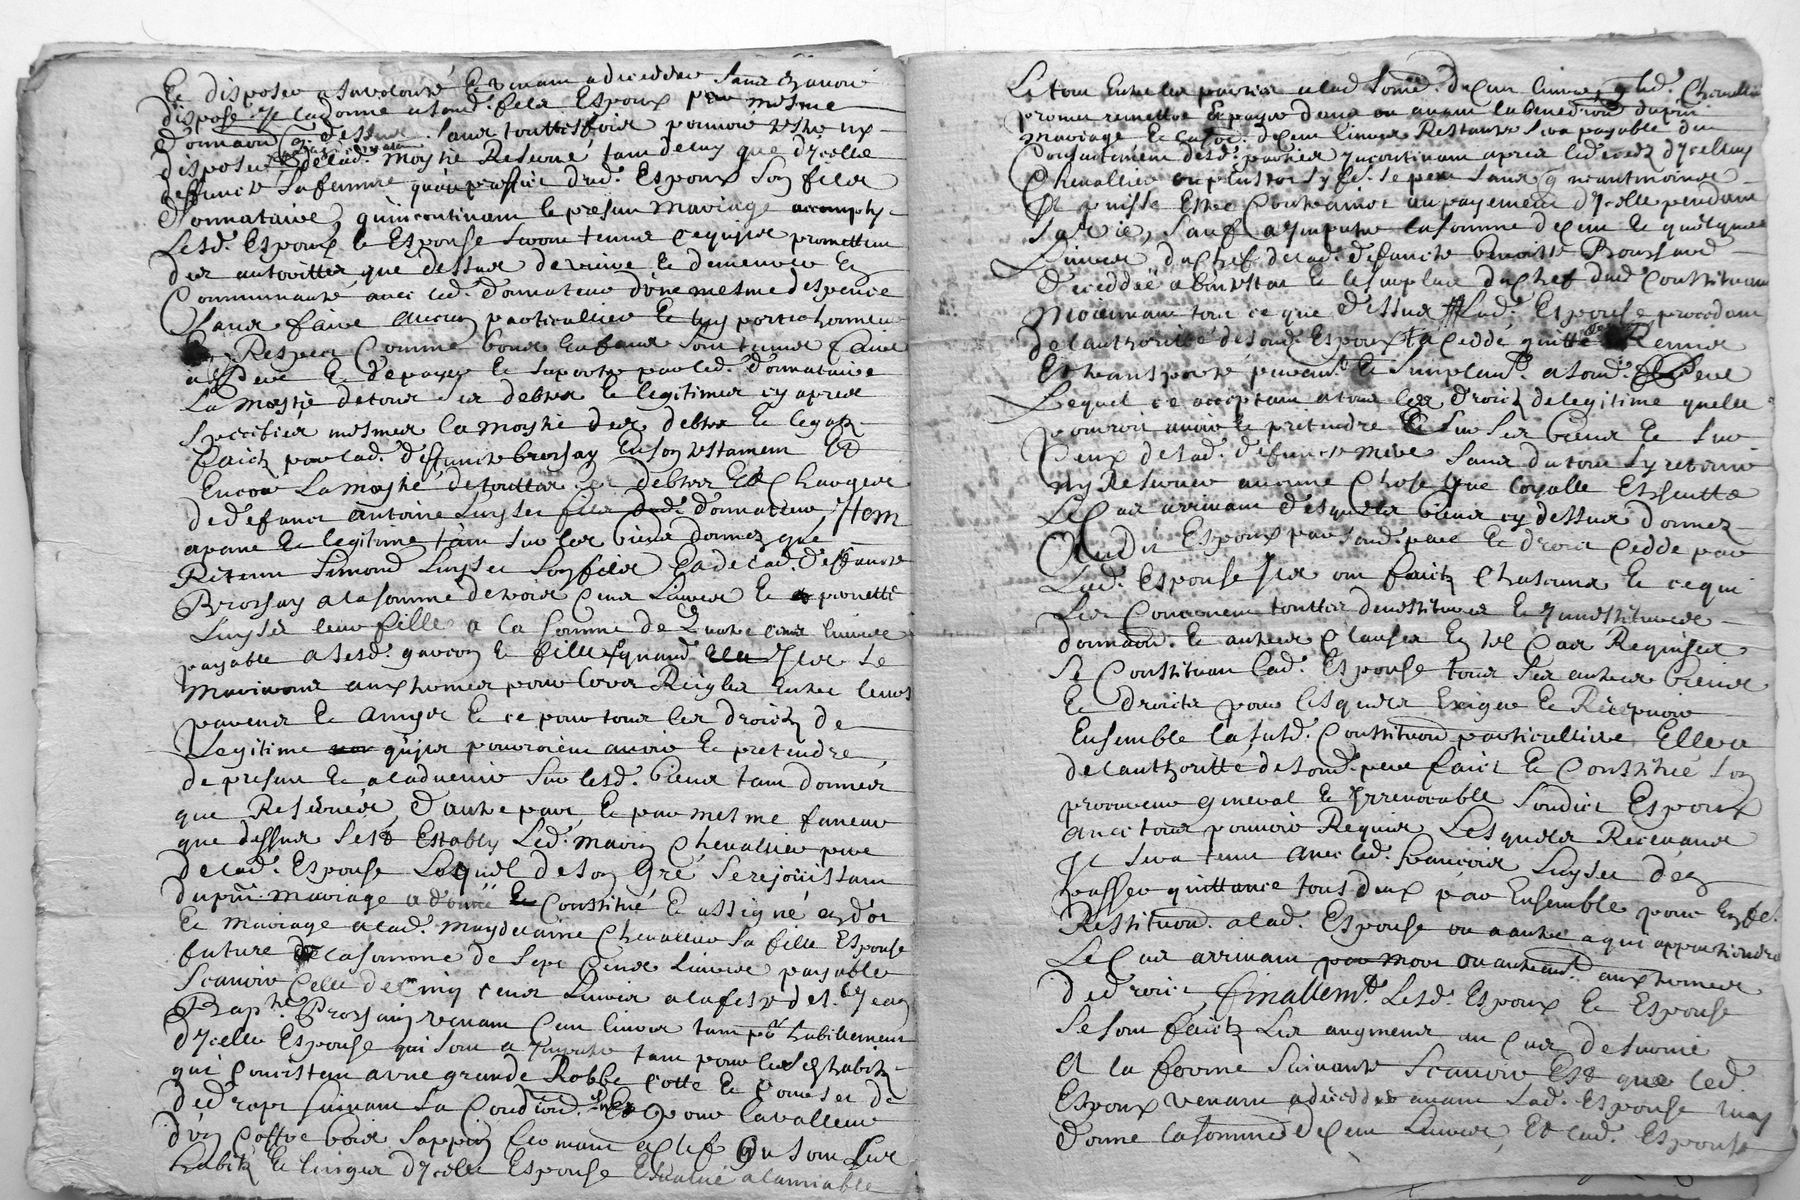 Et disposer a sa volonté Et venant a deceder sans En avoir
disposé Il la donne a sond. filz Espoux par mesme
donnaon dessus sans touttesfois pouvoir estre
disposer de lad. moytié Reservé tant de luy que d'ycelle
deffuncte sa femme qu'au proffict dud. Espoux son filz
Donnataire, qu'incontinant le presant mariage accomply
Lesd. Espoux et Espouse seront tenus promettent
des autorittes que dessus de vivre Et demeurer En
Communauté avec led. donnateur d'une mesme despence
sans faire aucun particullier Et luy porter honneur
Respect Comme bons Enfants sont tenus faire
a pere Et de payer Et suporter par led. donnataire
La moytié de tous ses debtes Et legitimes cy apres
Speciffiez mesmes la moytié des debtes Et legatz
faictz par lad. deffuncte brossay En son testament Et
Encore La moytié de touttes les debtes Et Charges
de defunct antoine Luyset filz dud. donnateur, Item
apane Et legitime tant sur les biens donnez que
Retenu Simond Luyset son filz Et de lad. deffuncte
Brossay a la somme de trois Cens Livres Et pernette
Luyset leur fille a la somme de Quatre Cens livres
payable a sesd. garcon Et fille quand Ilz se
Mariront aux termes pour lors Reigles Entre leurs
parens Et amys Et ce pour tous les droictz de
Legitime qu'ilz pourroient avoir Et pretendre,
de presant Et a l'advenir sur lesd. biens tant donnez
que Reservez, D'autre part, Et par mesme faveur
que dessus s'est Estably Led. Chevallier pere
De lad. Espouse Lequel de son Gré se rejouissant
du pnt mariage a donné Constitué Et assigné en dot
Et mariage a lad. Magdelaine Chevallier sa fille Espouse
future de la somme de Sept Cens Livres payable
Scavoir Celle de Cinq Cens Livres a la feste de St Jean
Bapte. Prochain venant Cent livres tant
d'ycelle Espouse qui sont a tant pour les habitz
qui Consistent a une grande Robbe Cotte Et de
de drapt suivant sa Condition
d'un Coffre bois sappin fermant a Clef ou sont les
habitz Et linges d'ycelle Espouse Estimé a l'amiable
Et tout Entre les parties a lad. Somme de Cent livres que led. Chevallier
promet remettre Et payer dans ou avant la benediction du pnt
mariage Et la Cent livres Restants sera payable du
Consentement desd. parties Incontinant apres le deceds d'ycelluy
Chevallier ou plustost sy led. se peut sans que neantmoins
Il puisse Estre Contrainct au payement d'ycelle pendant
Sa Vie, Sauf a Imputer la somme de Cent Et quelques
Livres du Chef de lad. defuncte Benoiste Broussard
Decedée abintestat Et le surplus du Chef dud. Constituant
Moiennant tout ce que dessus lad. Espouse procedant
de l'authorité de sond. Espoux a Ceddé quitté Remis
Et transporté purement Et simplement a sond. Pere
Lequel ce acceptant a tous les droictz de legitime quelle
pourroit avoir Et pretendre sur ses biens Et sur
Ceux de lad. defuncte mere sans du tout sy retenir
ny Reserver aucune Chose que loyalle Eschutte
Le Cas arrivant desquelz biens cy dessus donnez
Audit Espoux par sond. pere Et droict Cedde par
Lad. Espouse Ilz ont faictz Chascuns Et ce qui
Les Concernent touttes devestitures Et Investitures
donnaon. Et autres Clauses En tel Cas Requises
Se Constituant lad. Espouse tous ses autres biens
Et droictz pour lesquelz Exiger Et Recepvoir
Ensemble la susd. Constitution particulliere Elle a
de l'authoritte de sond. pere faict Et Constitué son
procureur general Et Irrevocable Sondict Espoux
avec tout pouvoir Requis Lesquelz Recevant
Il sera tenu avec led. francois Luyset den
passer quittance tous deux par Ensemble pour En fe.
Restitution a lad. Espouse ou autre a qui appartiendra
Le Cas arrivant par mort ou autremt. aux termes
de droict, finallemt. Lesd. Espoux Et Espouse
Se sont faictz les augments au Cas de survie
Et la forme Suivante Scavoir Est que led.
Espoux venant a deceder avant lad. Espouse luy
donne la somme de Cent Livres, Et lad. Espouse